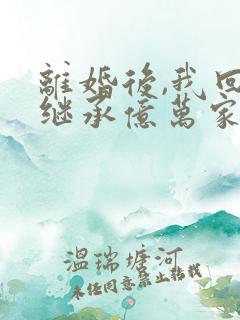 離婚後,我回
继承億萬家
溫瑞塘河
未经同意禁止转载